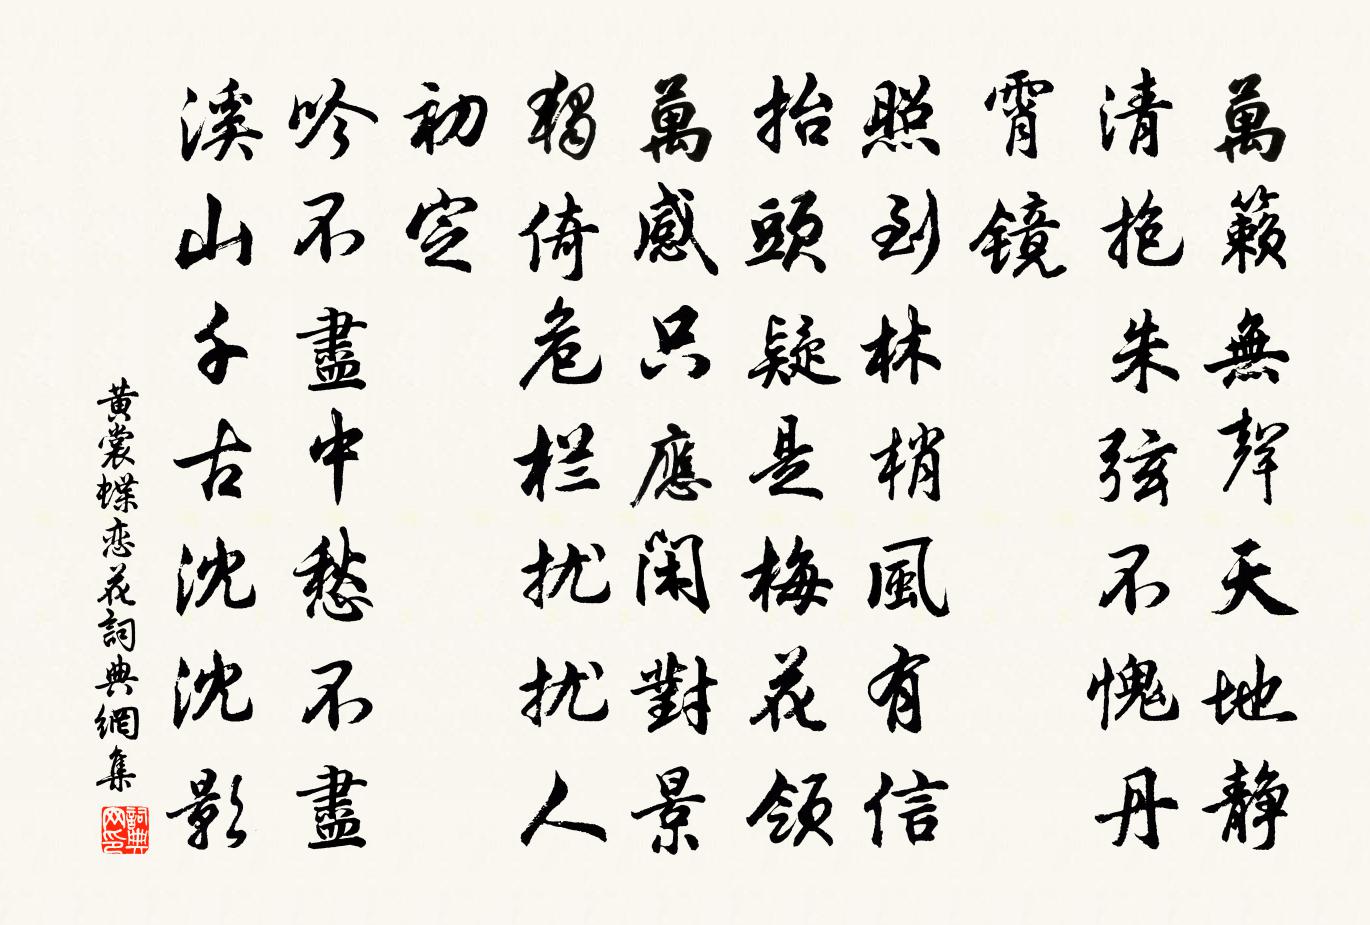 萬籟無聲天地静
清抱朱弦不愧丹
霄镜
照到林梢風有信
抬頭疑是梅花領
萬感只應閑對景
獨倚危栏扰扰人
初定
吟不盡中愁不盡
溪山千古沈沈影
黄裳蝶恋花詞典網集
詞典网印